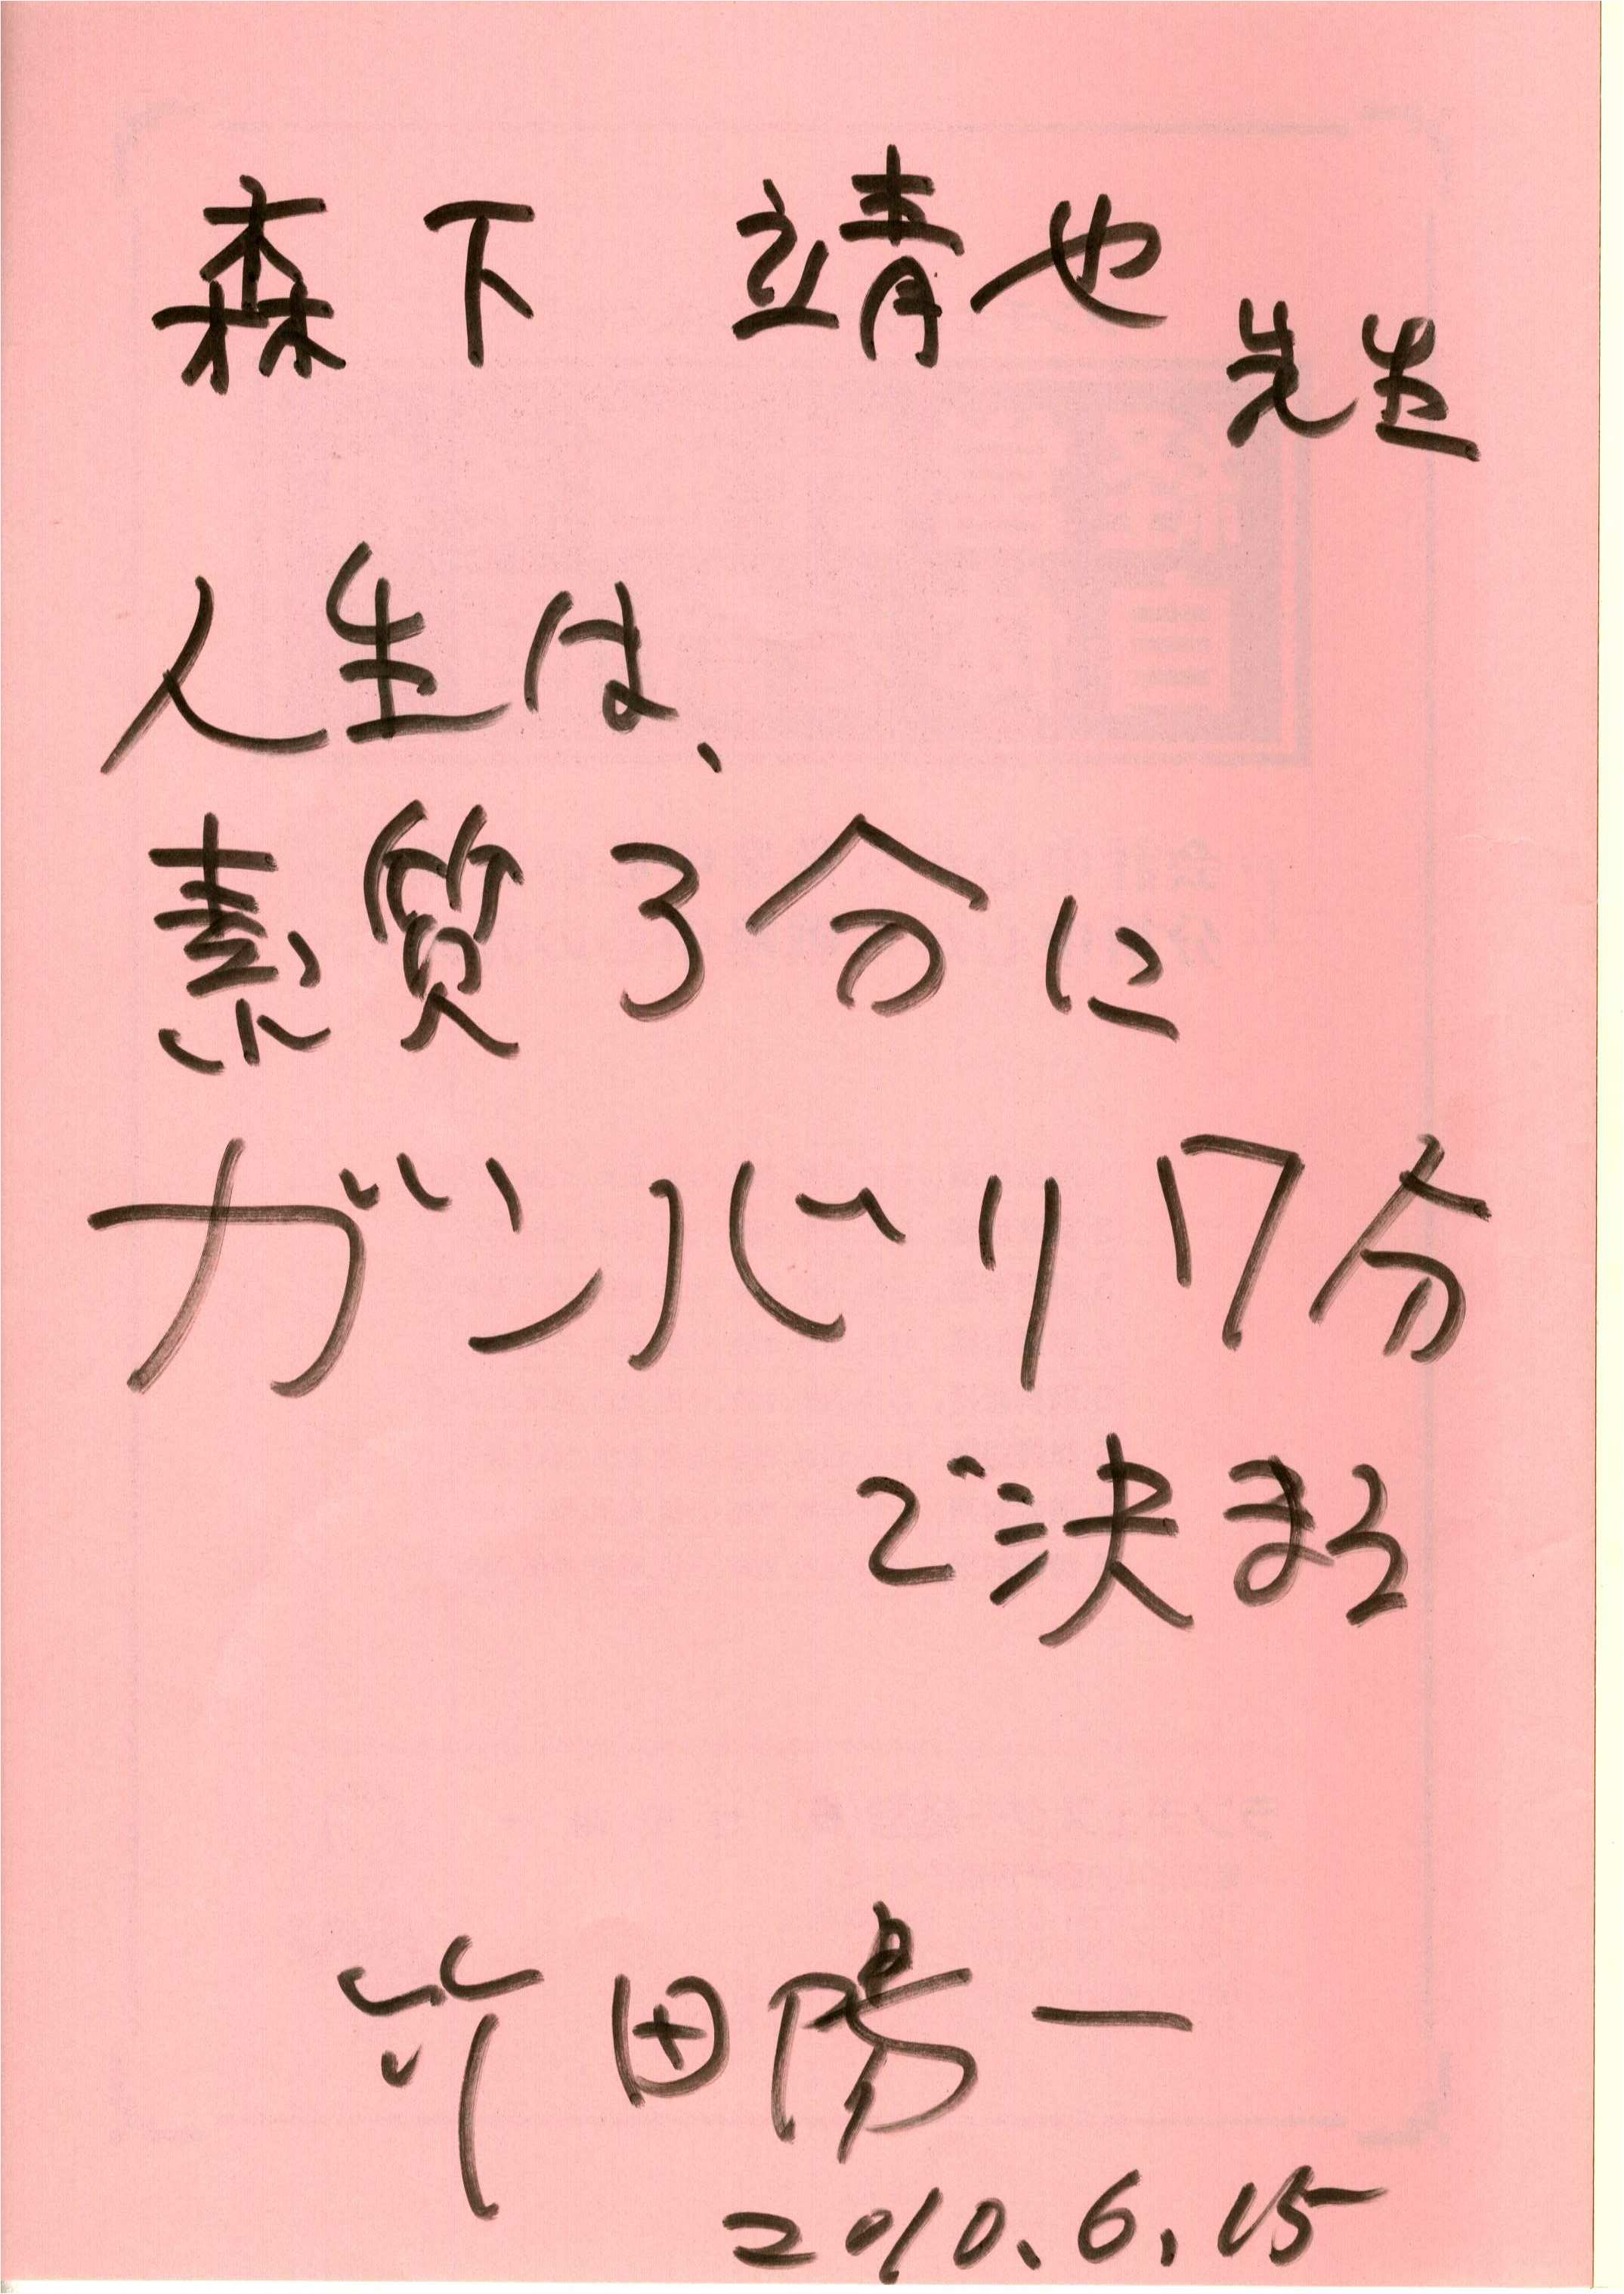 森下 靖也 先生
人生は、
素質3分に
ガンバリ7分
で決まる
竹田陽一
2010.6.15